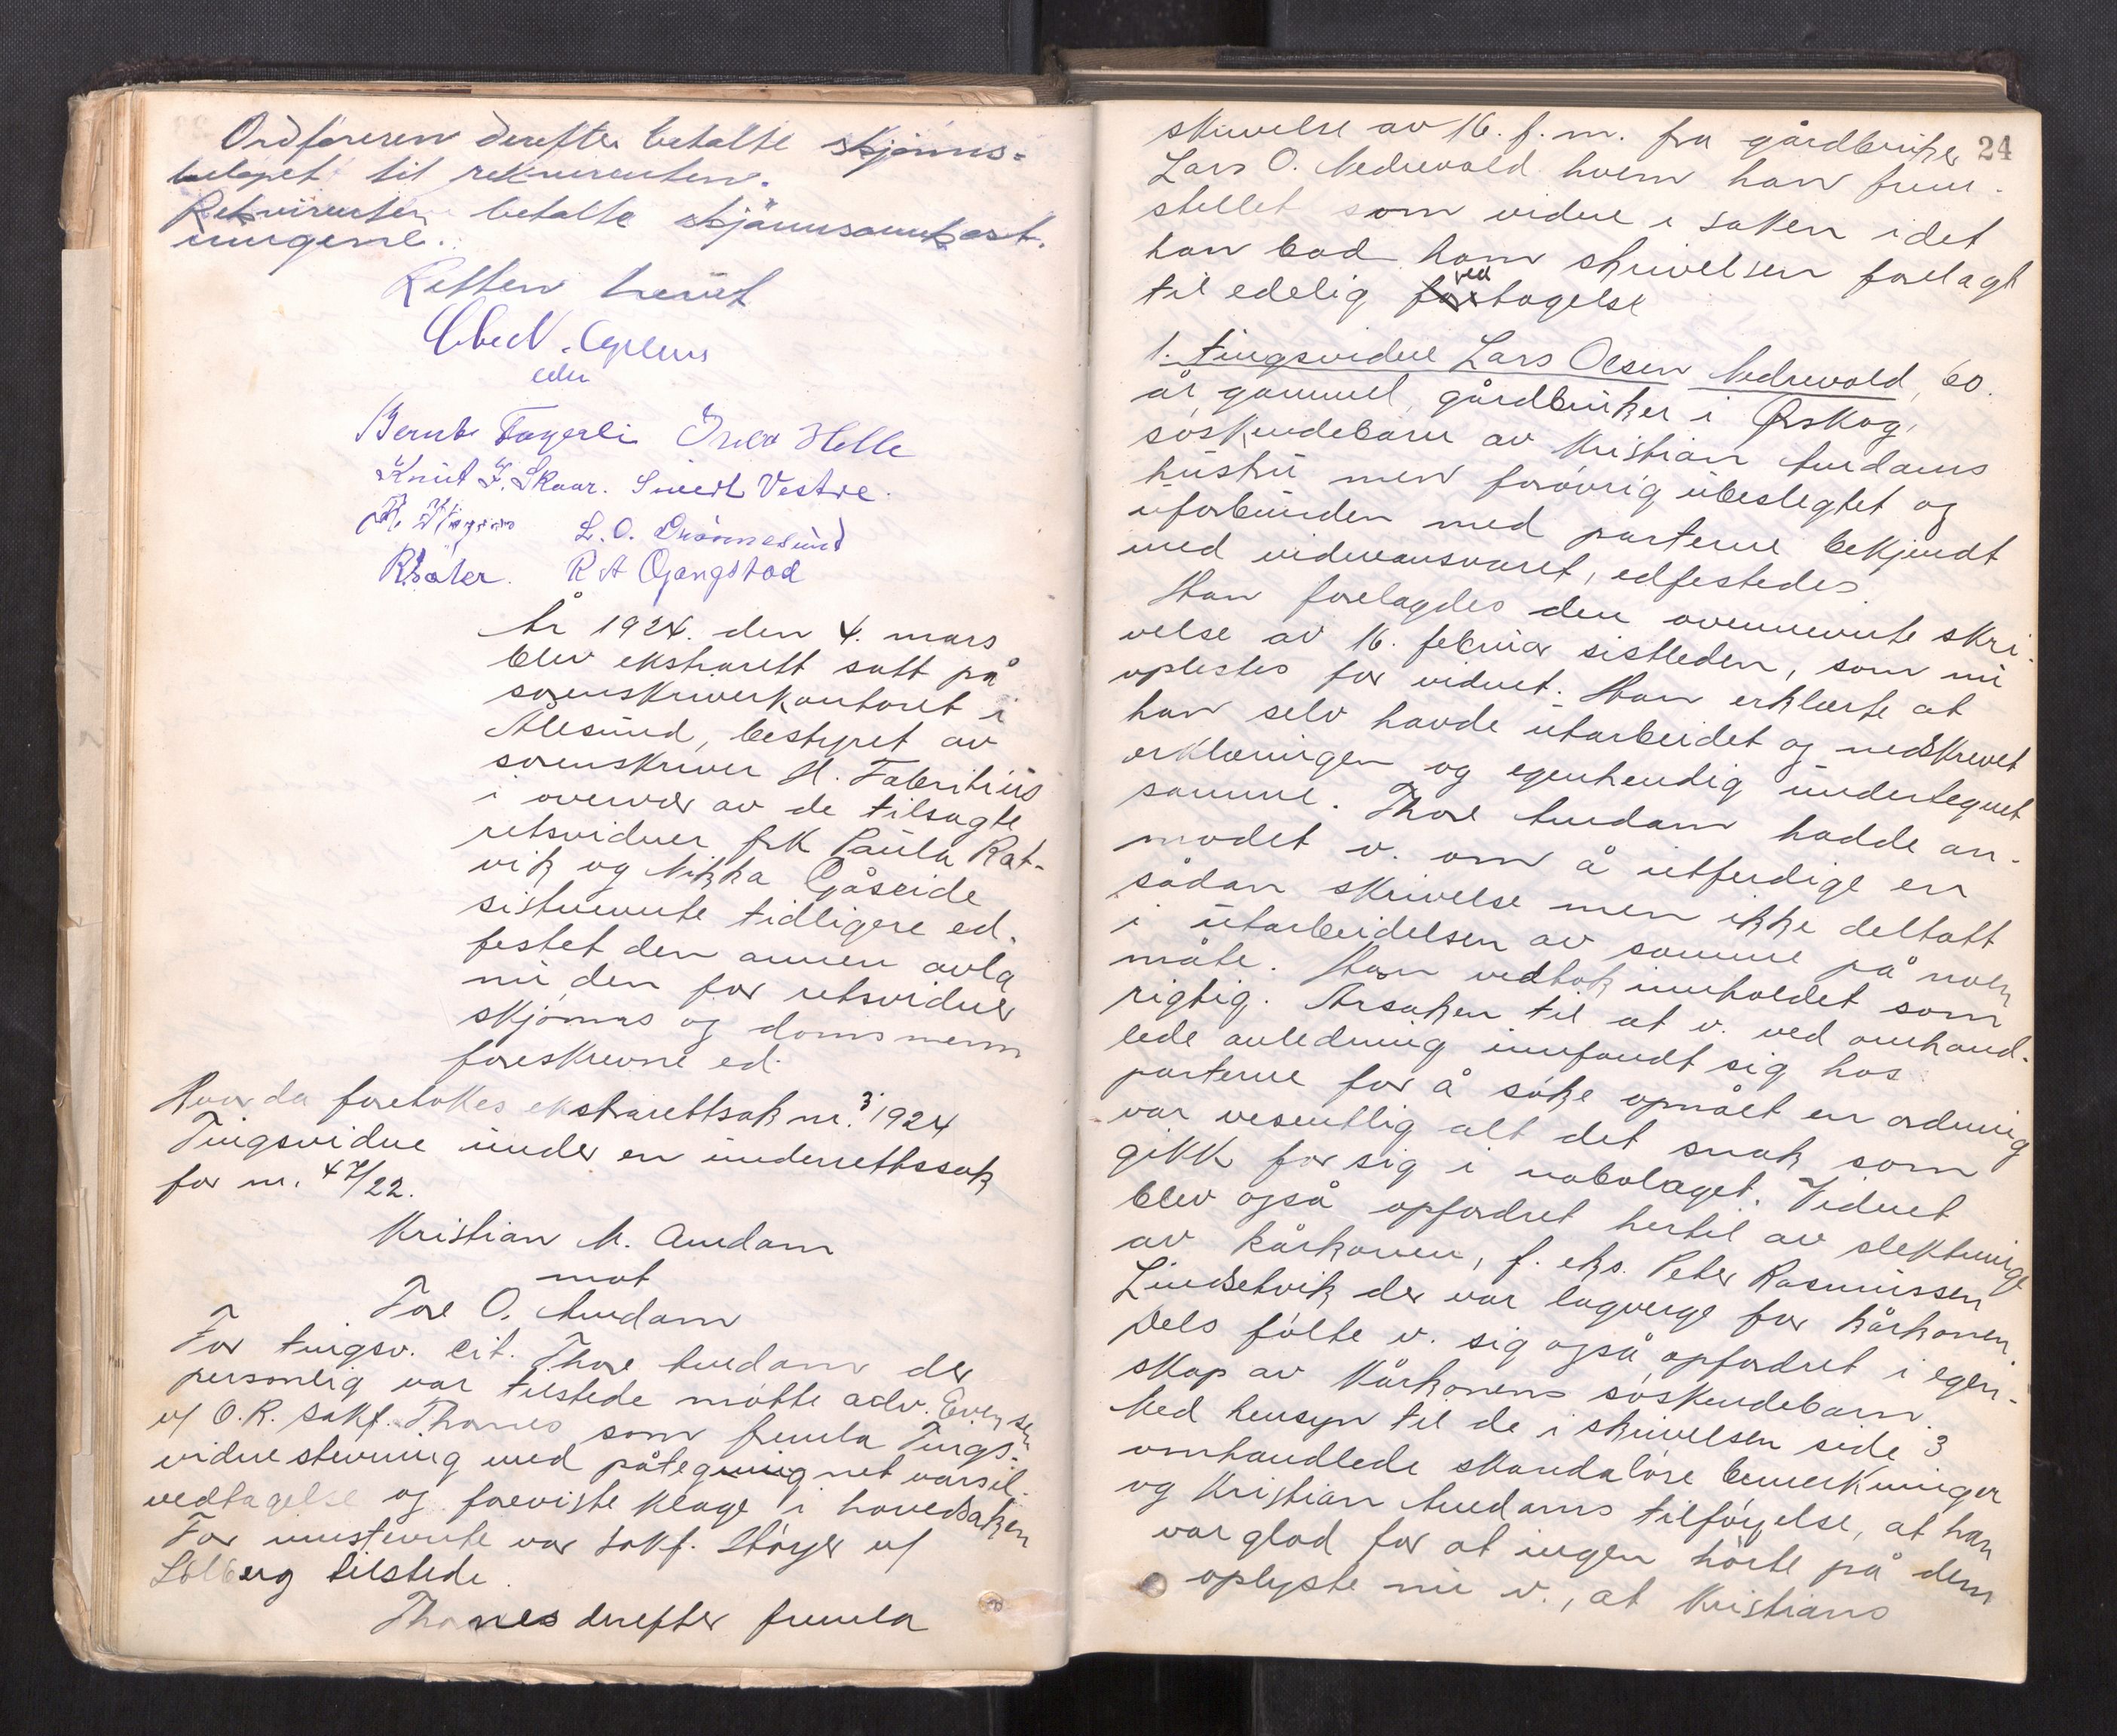 Ordføreren derefter betalte skjønns-
beløpet til rekvirenten.
Rekvirenten betalte skjønnsomkost-
ningene.
Retten hevet
eder
Bernt Fagerli Helle
Knut J. Skaar. Sivert Vestre.
L. O.
R. Sæter. R A Gjengstad
År 1924. den 4. mars
blev ekstrarett satt på
sorenskriverkontoret i
Ålesund, bestyret av
sorenskriver H. Fabritius
i overvær av de tilsagte
retsvidner frk Paula Rat-
vik og Nikka Gåseide
sistnevnte tidligere ed-
festet den annen avla
nu den for retsvidner
skjønns og domsmenn
foreskrevne ed.
Hvor da foretokes ekstrarettsak nr. 3 1924
Tingsvidne under en underrettssak
for nr. 47/22.
Kristian M. Aurdam
mot
Tore O. Aurdam
For tingsv. cit. Thore Aurdam der
personlig var tilstede møtte adv. Evensen
u/ O.R. sakf. Thones som fremla Tings-
vidnestevning med påtegnet varsil-
vedtagelse og foreviste klage i hovedsaken
For innstevnte var sakf. Støyer u/
Solberg tilstede.
Thones derefter fremla
24
skrivelse av 16. f. m. fra gårdbruker
Lars O. Nedrevold hvem han frem-
stillet som vidne i saken idet
han bad ham skrivelsen forelagt
til edelig vedtagelse
1. tingsvidne Lars Olsen Nedrevold, 60.
år gammel, gårdbruker i Ørskog,
søskendebarn av Kristian Aurdams
hustru men forøvrig ubeslegtet og
uforbunden med parterne bekjendt
med vidneansvaret, edfestedes.
Han forelagdes den ovennevnte skri-
velse av 16. februar sistleden, som nu
oplestes for vidnet. Han erklærte at
han selv havde utarbeidet og nedskrevet
erklæringen og egenhendig undertegnet
samme. Thore Aurdam hadde an-
modet v. om å utferdige en
sådan skrivelse men ikke deltatt
i utarbeidelsen av samme på noen
måte. Han vedtok innholdet som
rigtig. Årsaken til at v. ved omhand-
lede anledning innfandt sig hos
parterne for å søke opnået en ordning
var vesentlig alt det snak som
gikk for sig i nabolaget. Vidnet
blev også opfordret hertil av slektninge
av kårkonen, f. eks. Peter Rasmussen
Lindsetvik der var lagverge for kårkonen.
Dels følte v. sig også opfordret i egen-
skap av kårkonens søskendebarn.
Med hensyn til de i skrivelsen side 3
omhandlede skandaløse bemerkninger
og Kristian Aurdams tilføyelse, at han
var glad for at ingen hørte på dem
oplyste nu v., at Kristians